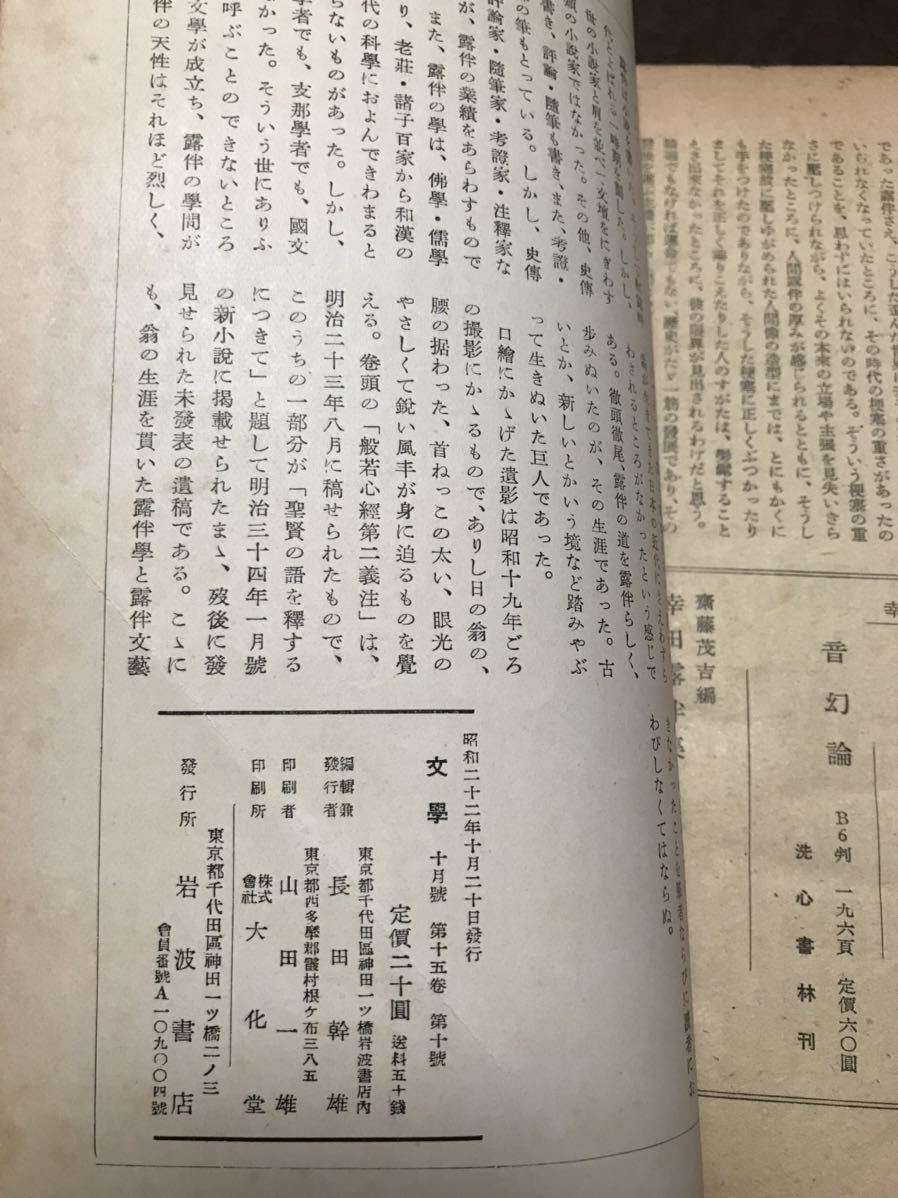 であることを、思わずにはいられないのである。そういう梗塞の重
さに壓しつけられながら、よくその本来の立場や主張を見失いきら
なかったところに、人間露伴の厚みが感じられるとともに、そうし
た梗塞故に壓しゆがめられた人間像の造型にまでは、とにもかくに
も手をつけたのでありながら、そうした梗塞に正しくぶつかったり
音幻論 B6判 一九六頁 定價六〇圓
洗心書林刊
齋藤茂吉編
世の小說家と肩を並べ、文壇をにぎわす
類の小說家ではなかった。その他、史傳
も書き、評論・隨筆も書き、また、考證・
の筆もとっている。しかし、史傳
評論家・隨筆家・考證家・注釋家な
が、露伴の業績をあらわすもので
また、露伴の學は、佛學・儒學
り、老莊・諸子百家から和漢の
代の科學におよんできわまると
らないものがあった。しかし、
學者でも、支那學者でも、國文
かった。そういう世にありふ
呼ぶことのできないところ
文學が成立ち、露伴の學問が
伴の天性はそれほど烈しく、
わされるところがなかったという感じで
ある。徹頭徹尾、露伴の道を露伴らしく、
歩みぬいたのが、その生涯であった。古
いとか、新しいとかいう境など踏みやぶ
って生きぬいた巨人であった。
口繪にかゝげた遺影は昭和十九年ごろ
の撮影にかゝるもので、ありし日の翁の、
腰の据わった、首ねっこの太い、眼光の
やさしくて銳い風丰が身に迫るものを覺
える。卷頭の「般若心經第二義注」は、
明治二十三年八月に稿せられたもので、
このうちの一部分が「聖賢の語を釋する
につきて」と題して明治三十四年一月號
の新小說に掲載せられたまゝ、歿後に發
見せられた未發表の遺稿である。こゝに
も、翁の生涯を貫いた露伴學と露伴文藝
わびしなくてはならぬ。
昭和二十二年十月二十日發行
文學 十月號 第十五卷 第十號
定價二十圓 送料五十錢
東京都千代田區神田一ツ橋岩波書店內
編輯兼發行者 長田幹雄
東京都西多摩郡霞村根ケ布三八五
印刷者 山田一雄
印刷所 株式會社 大化堂
東京都千代田區神田一ツ橋二ノ三
發行所 岩波書店
會員番號A一〇九〇〇四號